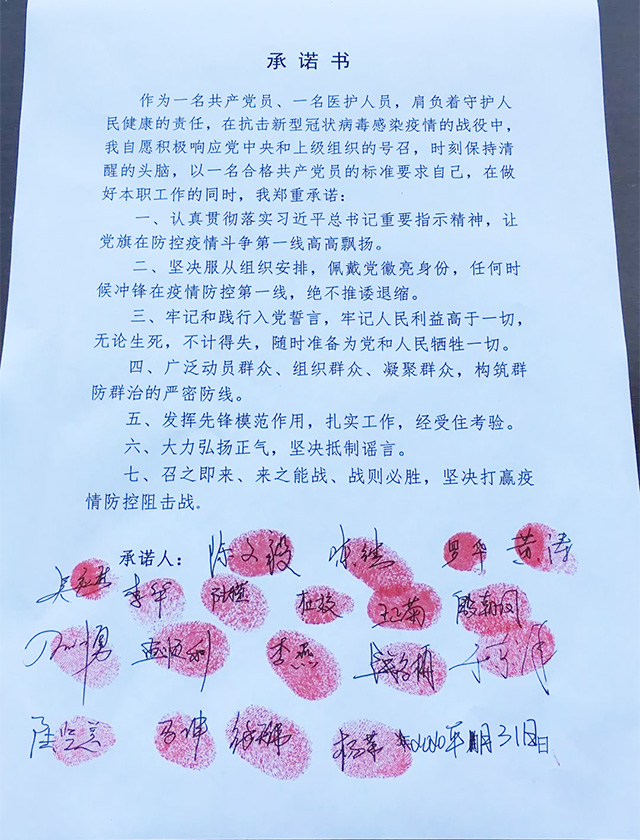 承诺书
作为一名共产党员、一名医护人员，肩负着守护人
民健康的责任，在抗击新型冠状病毒感染疫情的战役中，
我自愿积极响应党中央和上级组织的号召，时刻保持清
醒的头脑，以一名合格共产党员的标准要求自己，在做
好本职工作的同时，我郑重承诺：
一、认真贯彻落实习近平总书记重要指示精神，让
党旗在防控疫情斗争第一线高高飘扬。
二、坚决服从组织安排，佩戴党徽亮身份，任何时
候冲锋在疫情防控第一线，绝不推诿退缩。
三、牢记和践行入党誓言，牢记人民利益高于一切，
无论生死，不计得失，随时准备为党和人民牺牲一切。
四、广泛动员群众、组织群众、凝聚群众，构筑群
防群治的严密防线。
五、发挥先锋模范作用，扎实工作，经受住考验。
六、大力弘扬正气，坚决抵制谣言。
七、召之即来、来之能战、战则必胜，坚决打赢疫
情防控阻击战。
承诺人： 罗华 黄涛
李华
李燕
杨苹 2020年1月31日